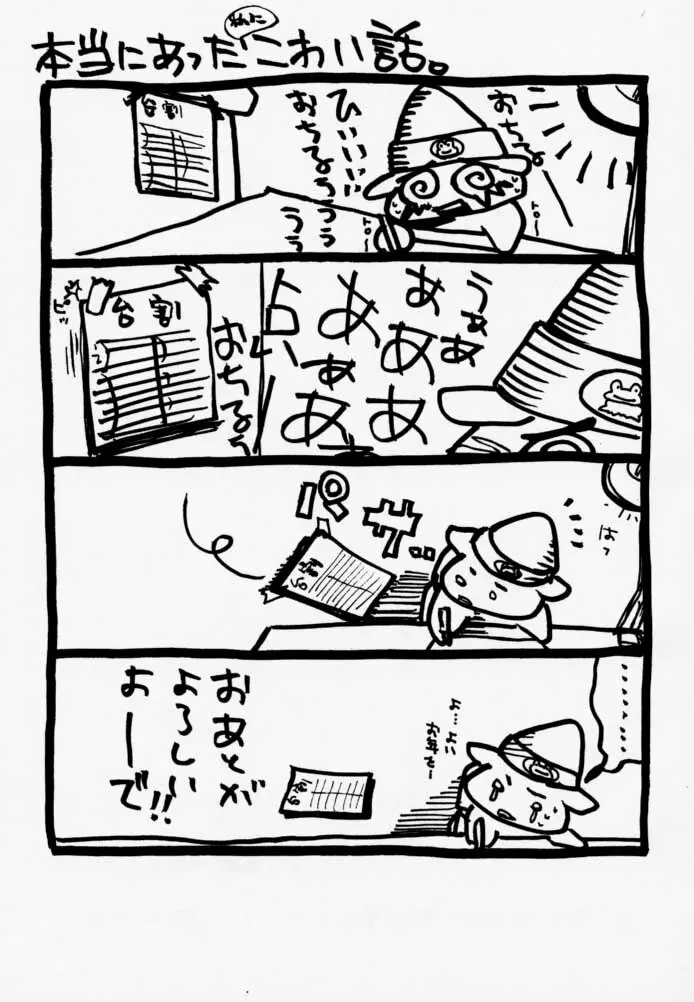 本当にあっただこわい話。
おちる
ひぃぃぃぃ
おちるぅぅぅ
うぅ
台割
トロ〜
トロ〜
うぁぁ
あぁああああぁ
占い
おちるぅ
台割
ピッ
はっ
パサッ
台割
………
よ…よい
お年を〜
おあとが
よろしい
よーで!!
台割